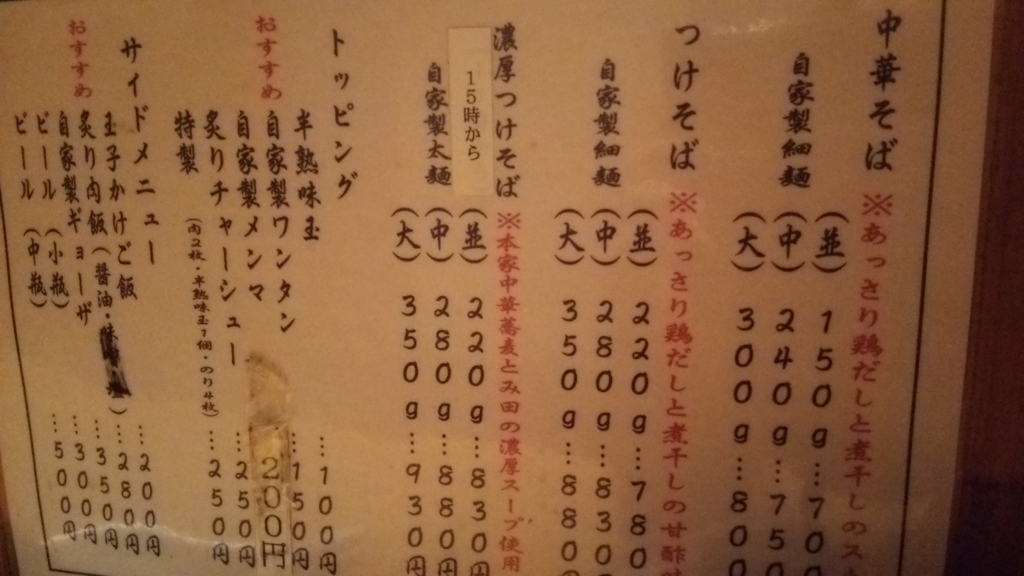 中華そば ※あっさり鶏だしと煮干しのス
自家製細麺 (並) 150g…70
(中) 240g…75
(大) 300g…80
つけそば ※あっさり鶏だしと煮干しの甘酢
自家製細麺 (並) 220g…780
(中) 280g…830
(大) 350g…880
濃厚つけそば ※本家中華蕎麦とみ田の濃厚スープ使用
15時から
自家製太麺 (並) 220g…830円
(中) 280g…880円
(大) 350g…930円
トッピング
半熟味玉 …100円
自家製ワンタン …150円
おすすめ 自家製メンマ 200円
炙りチャーシュー …250円
特製 (肉2枚・半熟味玉1個・のり4枚) …250円
サイドメニュー
玉子かけご飯 …200円
おすすめ 炙り肉飯(醤油・塩) …280円
自家製ギョーザ …350円
ビール (小瓶) …300円
ビール (中瓶) …500円